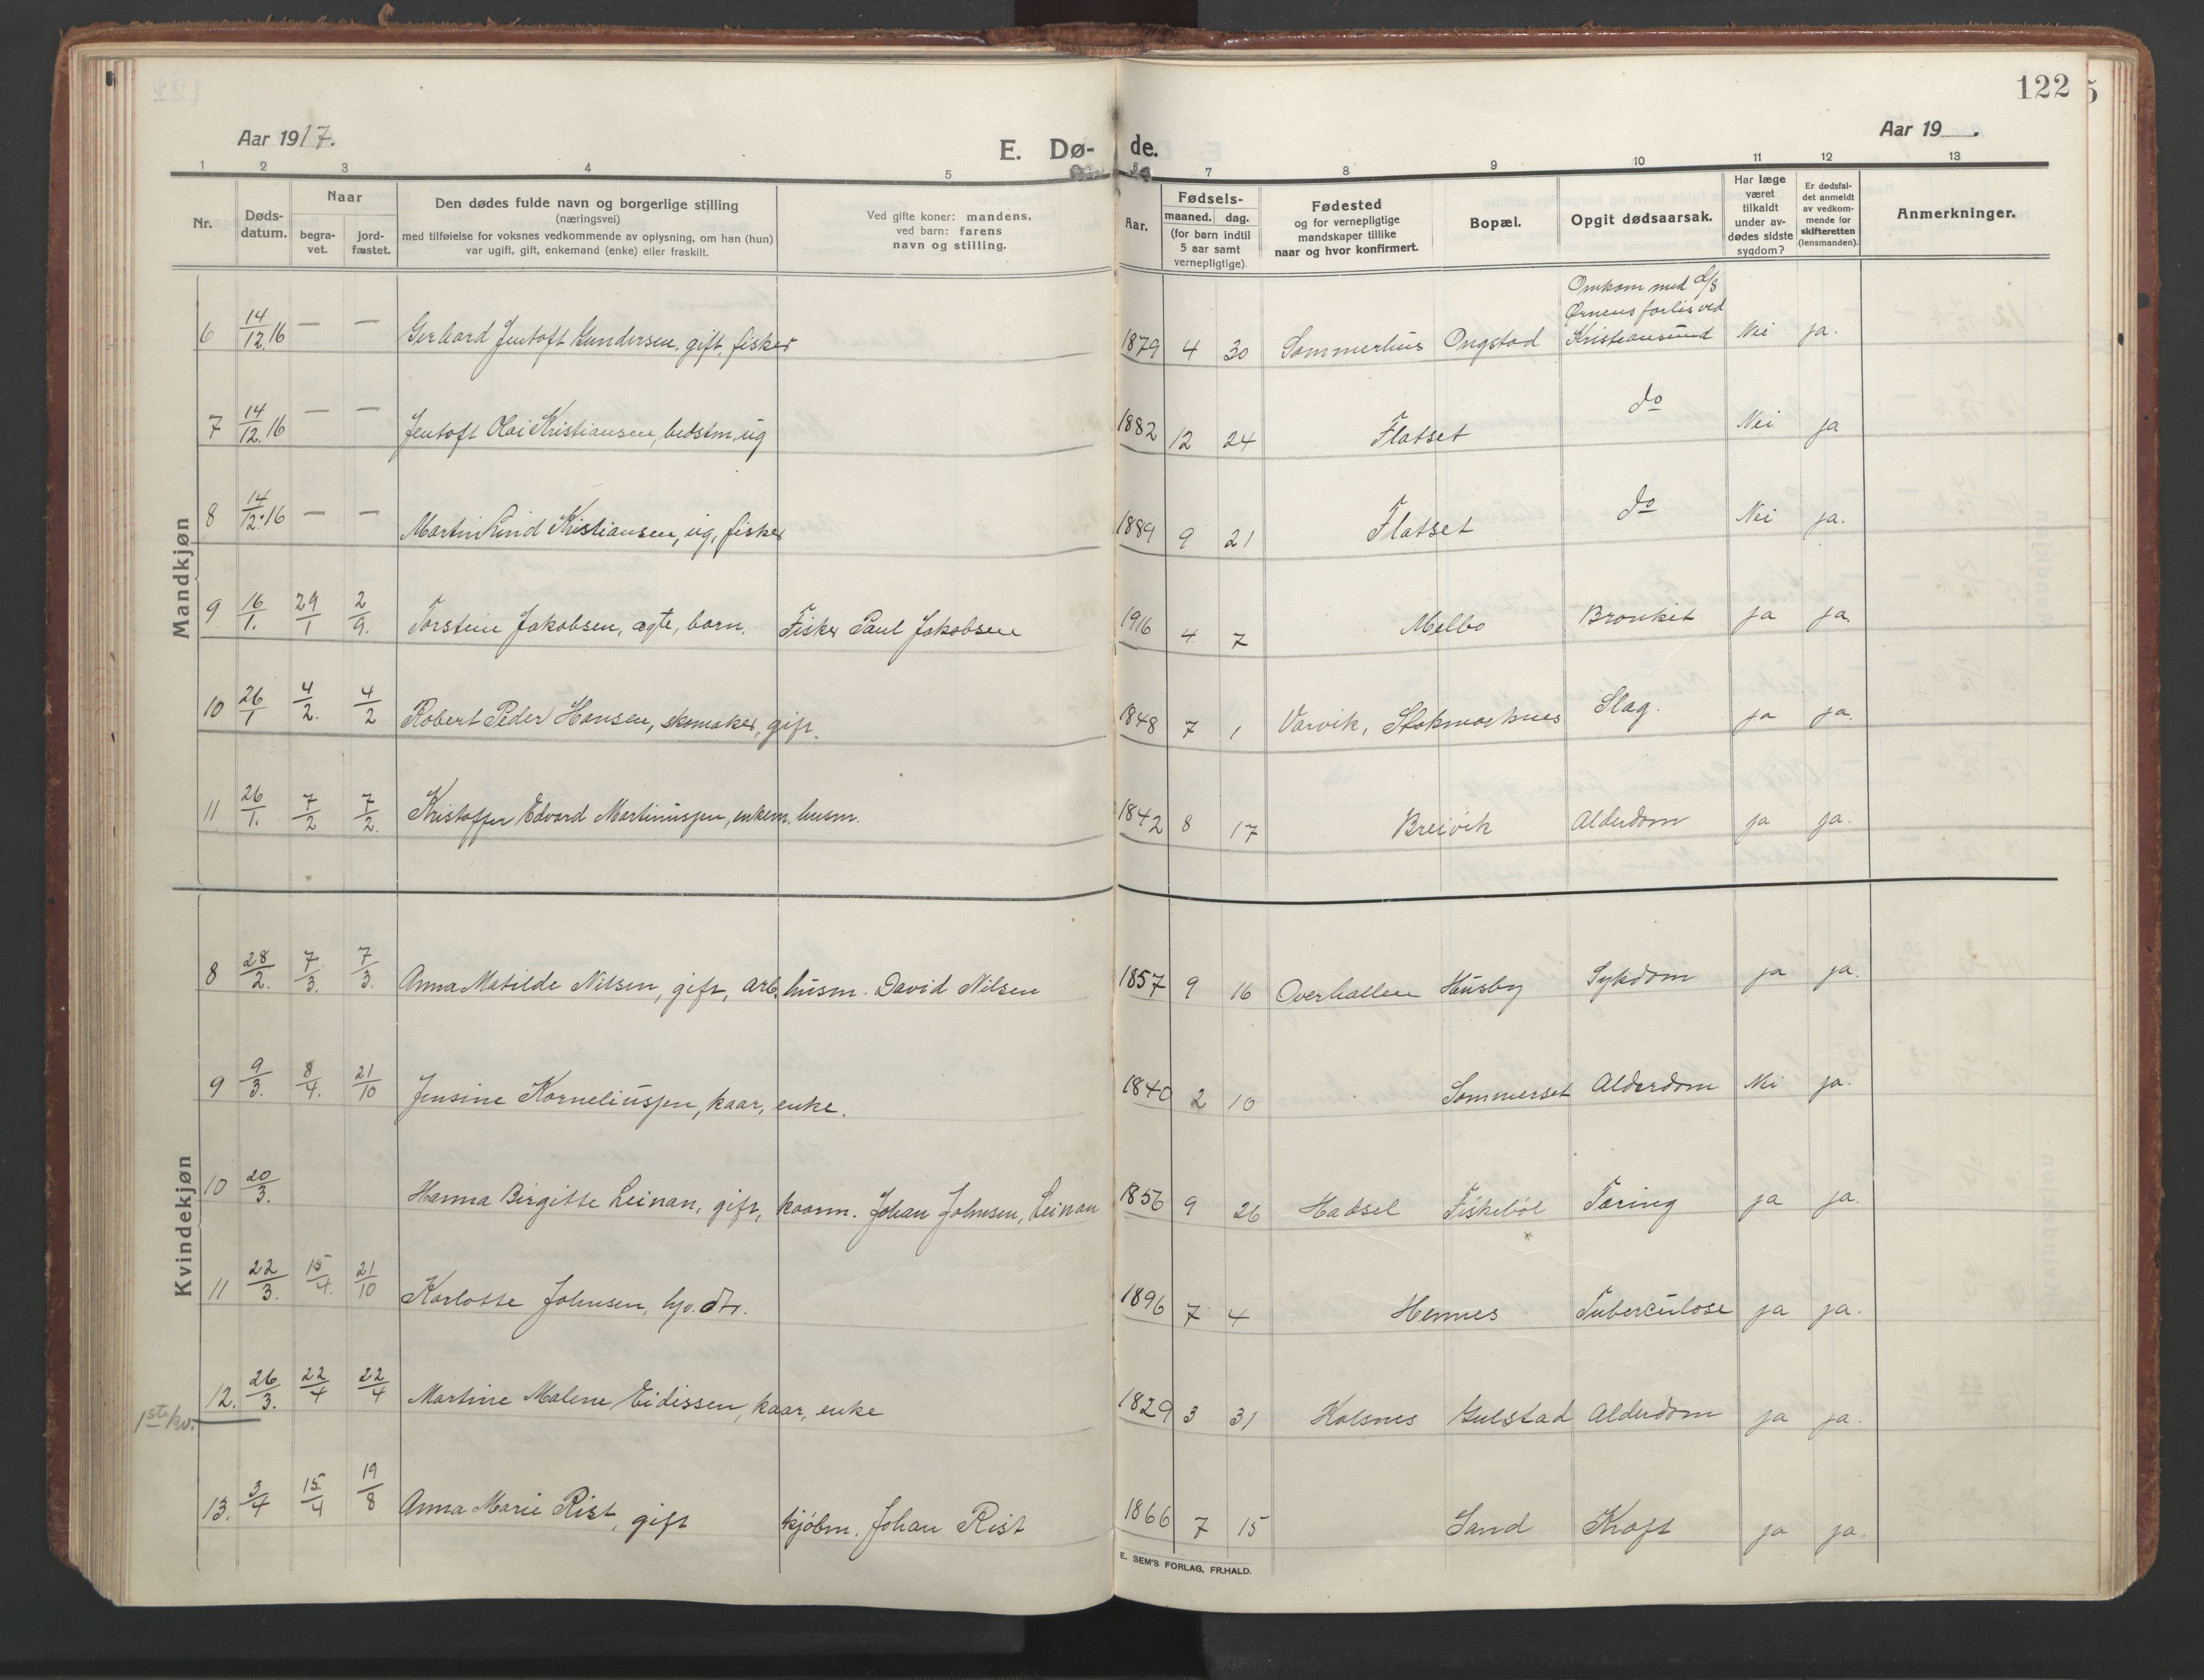 122
5
Aar 1917.
E. Dø-
de.
Aar 19 .
1 2 3 4 5 6 7 8 9 10 11 12 13
Nr.
Døds-
datum.
Naar
begra-
vet.
jord-
fæstet.
Den dødes fulde navn og borgerlige stilling
(næringsvei)
med tilføielse for voksnes vedkommende av oplysning, om han (hun)
var ugift, gift, enkemand (enke) eller fraskilt.
Ved gifte koner: mandens,
ved barn: farens
navn og stilling.
Aar.
Fødsels-
maaned. dag.
(for barn indtil
5 aar samt
vernepligtige).
Fødested
og for vernepligtige
mandskaper tillike
naar og hvor konfirmert.
Bopæl.
Opgit dødsaarsak.
Har læge
været
tilkaldt
under av-
dødes sidste
sygdom?
Er dødsfal-
det anmeldt
av vedkom-
mende for
skifteretten
(lensmanden).
Anmerkninger.
Mandkjøn
Omkom med d/s
Ørnens forlis ved
6 14/12.16 — — Gerhard Jentoft Gundersen, gift, fisker 1879 4 30 Sommerhus Ongstad Kristiansund Nei ja.
7 14/12.16 — — Jentoft Olai Kristiansen, bedstm, ug 1882 12 24 Flatset do Nei ja
8 14/12.16 — — Martin Lind Kristiansen, ug, fisker 1889 9 21 Flatset do Nei ja.
9 16/1. 29/1 2/9. Torstein Jakobsen, ægte, barn. Fisker Paul Jakobsen 1916 4 7 Melbo Bronkit ja ja.
10 26/1 4/2. 4/2 Robert Peder Hansen, skomaker, gift. 1848 7 1 Varvik, Stokmarknes Slag. ja ja.
11 26/1. 7/2 7/2. Kristoffer Edvard Martinussen, enkem. husm. 1842 8 17 Breivik Alderdom ja ja.
Kvindekjøn
8 28/2. 7/3. 7/3. Anna Matilde Nilsen, gift, arb. husm. David Nilsen 1857 9 16 Overhallen Husby Sykdom ja ja.
9 9/3. 8/4. 21/10 Jensine Korneliussen, kaar, enke. 1840 2 10 Sommerset Alderdom Nei ja.
10 20/3. Hanna Birgitte Leinan, gift, kaarm. Johan Johnsen, Leinan 1856 9 26 Hadsel Fiskebøl Tæring ja ja.
11 22/3. 15/4. 21/10 Karlotte Johnsen, hjv. dtr. 1896 7 4 Hennes Tuberculose ja ja.
12. 26/3. 22/4 22/4 Martine Malene Eidissen, kaar, enke 1829 3 31 Kolsnes Gulstad Alderdom ja ja.
1ste/kv.
13. 3/4 15/4 19/8 Anna Marie Rist, gift kjøbm. Johan Rist 1866 7 15 Sand Kræft ja ja.
E. SEM'S FORLAG, FR.HALD.